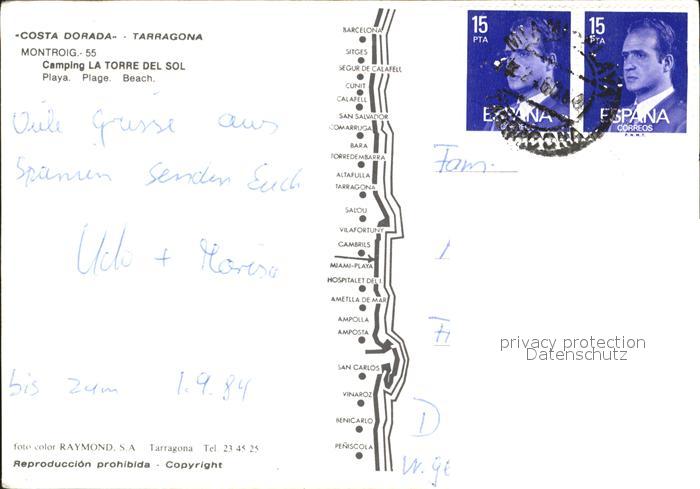 "COSTA DORADA" - TARRAGONA
MONTROIG.- 55
Camping LA TORRE DEL SOL
Playa. Plage. Beach.
Viele Grüsse aus
Spanien senden Euch
Udo + Marisa
bis zum 1.9.84
foto color RAYMOND, S.A Tarragona Tel. 23 45 25
Reproducción prohibida - Copyright
BARCELONA
SITGES
SEGUR DE CALAFELL
CUNIT
CALAFELL
SAN SALVADOR
COMARRUGA
BARA
TORREDEMBARRA
ALTAFULLA
TARRAGONA
SALOU
VILAFORTUNY
CAMBRILS
MIAMI-PLAYA
HOSPITALET DEL I.
AMETLLA DE MAR
AMPOLLA
AMPOSTA
SAN CARLOS
VINAROZ
BENICARLO
PEÑISCOLA
15
PTA
ESPAÑA
15
PTA
ESPAÑA
CORREOS
F.N.M.T.
MIAMI PLAYA
TARRAGONA
Fam.
privacy protection
Datenschutz
D